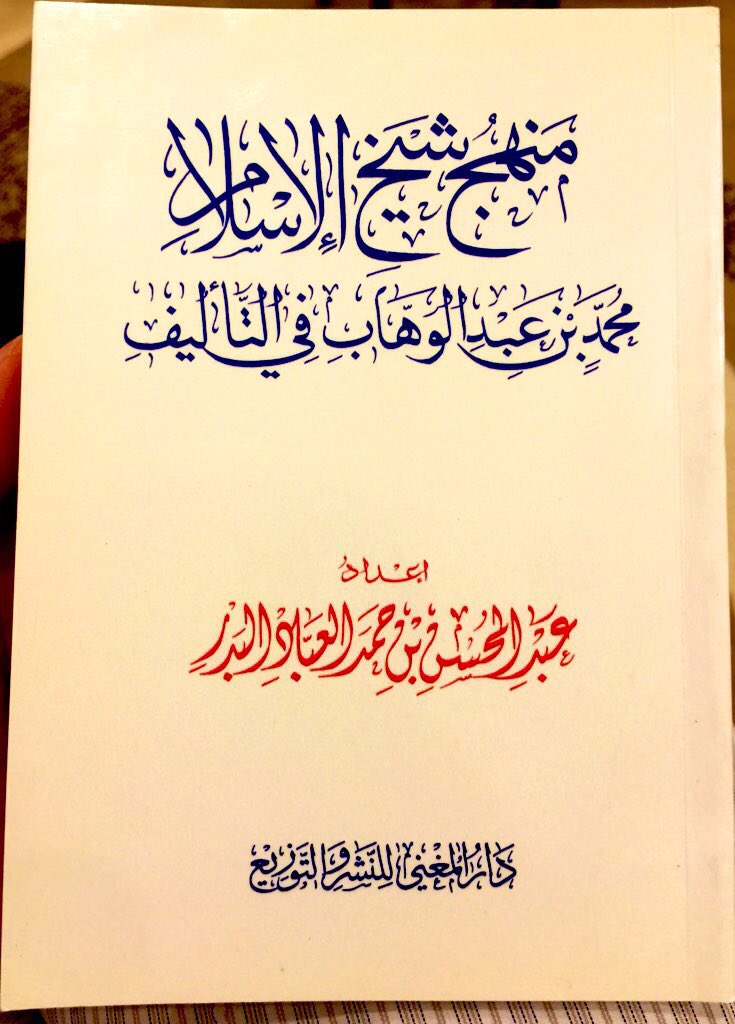 مَنهجُ شَيْخِ الإِسْلَامِ
مُحَمَّدِ بْنِ عَبْدِ الْوَهَّابِ فِي التَّأْلِيفِ
إعْدَادُ
عَبْدِ المُحْسِنِ بْنِ حَمَدِ العَبَّادِ البَدْرِ
دَارُ المُغْنِي لِلنَّشْرِ وَالتَّوْزِيعِ